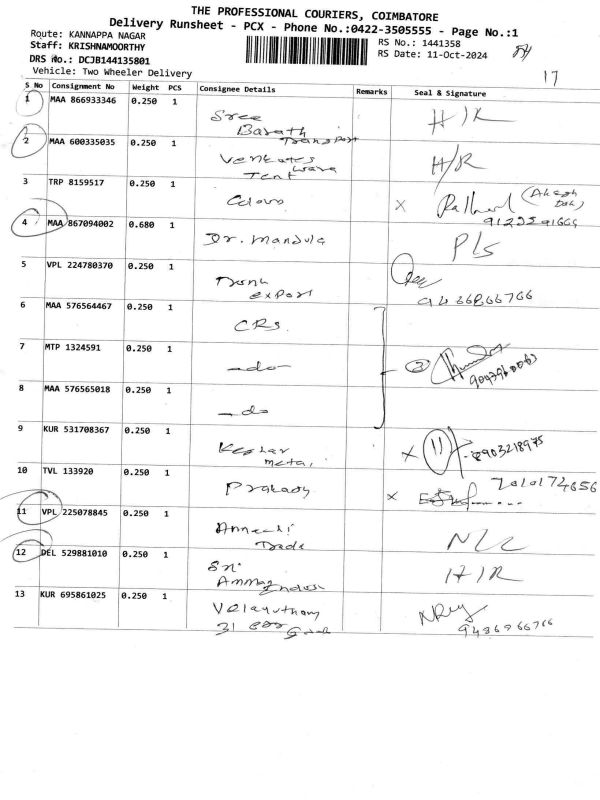 THE PROFESSIONAL COURIERS, COIMBATORE
Delivery Runsheet - PCX - Phone No.:0422-3505555 - Page No.:1
Route: KANNAPPA NAGAR
RS No.: 1441358
Staff: KRISHNAMOORTHY
RS Date: 11-Oct-2024
DRS No.: DCJB144135801
17
Vehicle: Two Wheeler Delivery
S No Consignment No Weight PCS Consignee Details Remarks Seal & Signature
1 MAA 866933346 0.250 1 Sree H/R
Barath
Transport
2 MAA 600335035 0.250 1 Venkates H/R
wara
Tent
3 TRP 8159517 0.250 1 X
4 MAA 867094002 0.680 1 Dr. Mandula P/s
5 VPL 224780370 0.250 1
export
6 MAA 576564467 0.250 1 CRs.
7 MTP 1324591 0.250 1 -do- 3
8 MAA 576565018 0.250 1 -do
9 KUR 531708367 0.250 1 Keshar X 8903218975
metal
10 TVL 133920 0.250 1 X 7010174656
11 VPL 225078845 0.250 1
Trade
12 DEL 529881010 0.250 1 Sri H/R
13 KUR 695861025 0.250 1 Velayutham
31